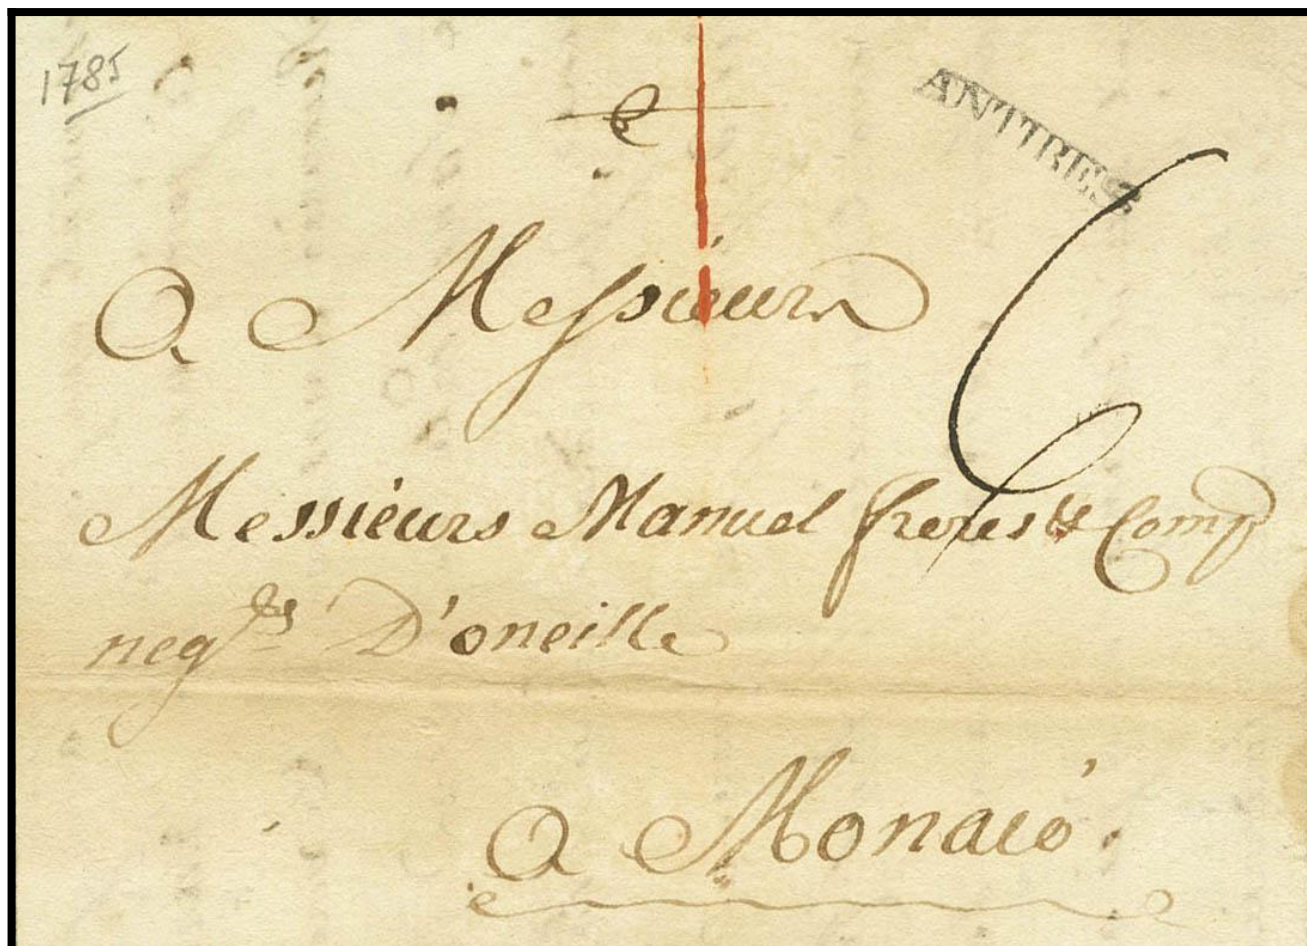 1785
ANTIBES
A Messieurs
Messieurs Manuel freres & Comp
negts D'oneille
A Monaco